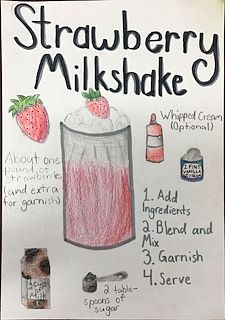 Strawberry
Milkshake
Whipped Cream
(Optional)
About one
pound of
strawberries
(and extra
for garnish)
1 PINT
VANILLA
1. Add
Ingredients
2. Blend and
Mix
3. Garnish
4. Serve
cup
of
Milk
2 table-
spoons of
sugar